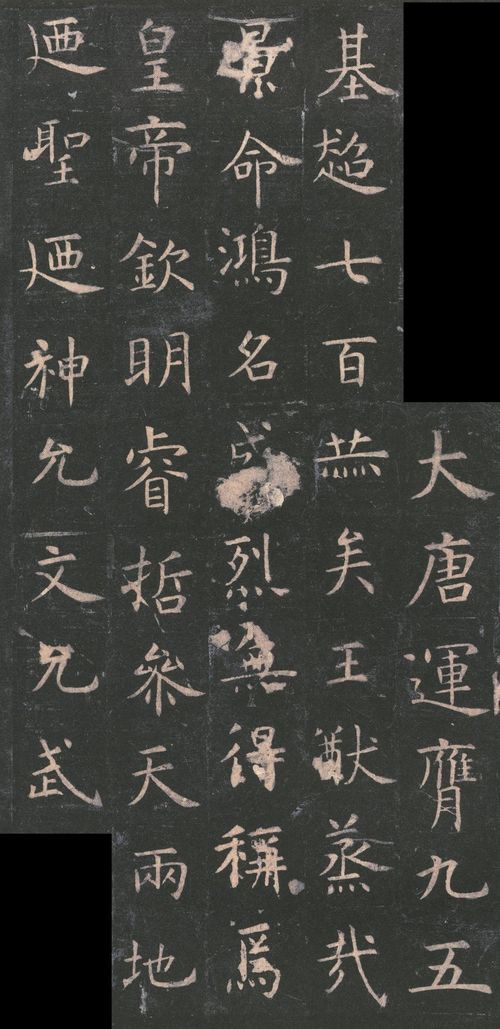 大唐運膺九五
基超七百赫矣王猷蒸哉
景命鴻名烈無得稱焉
皇帝欽明睿哲叅天兩地
迺聖迺神允文允武